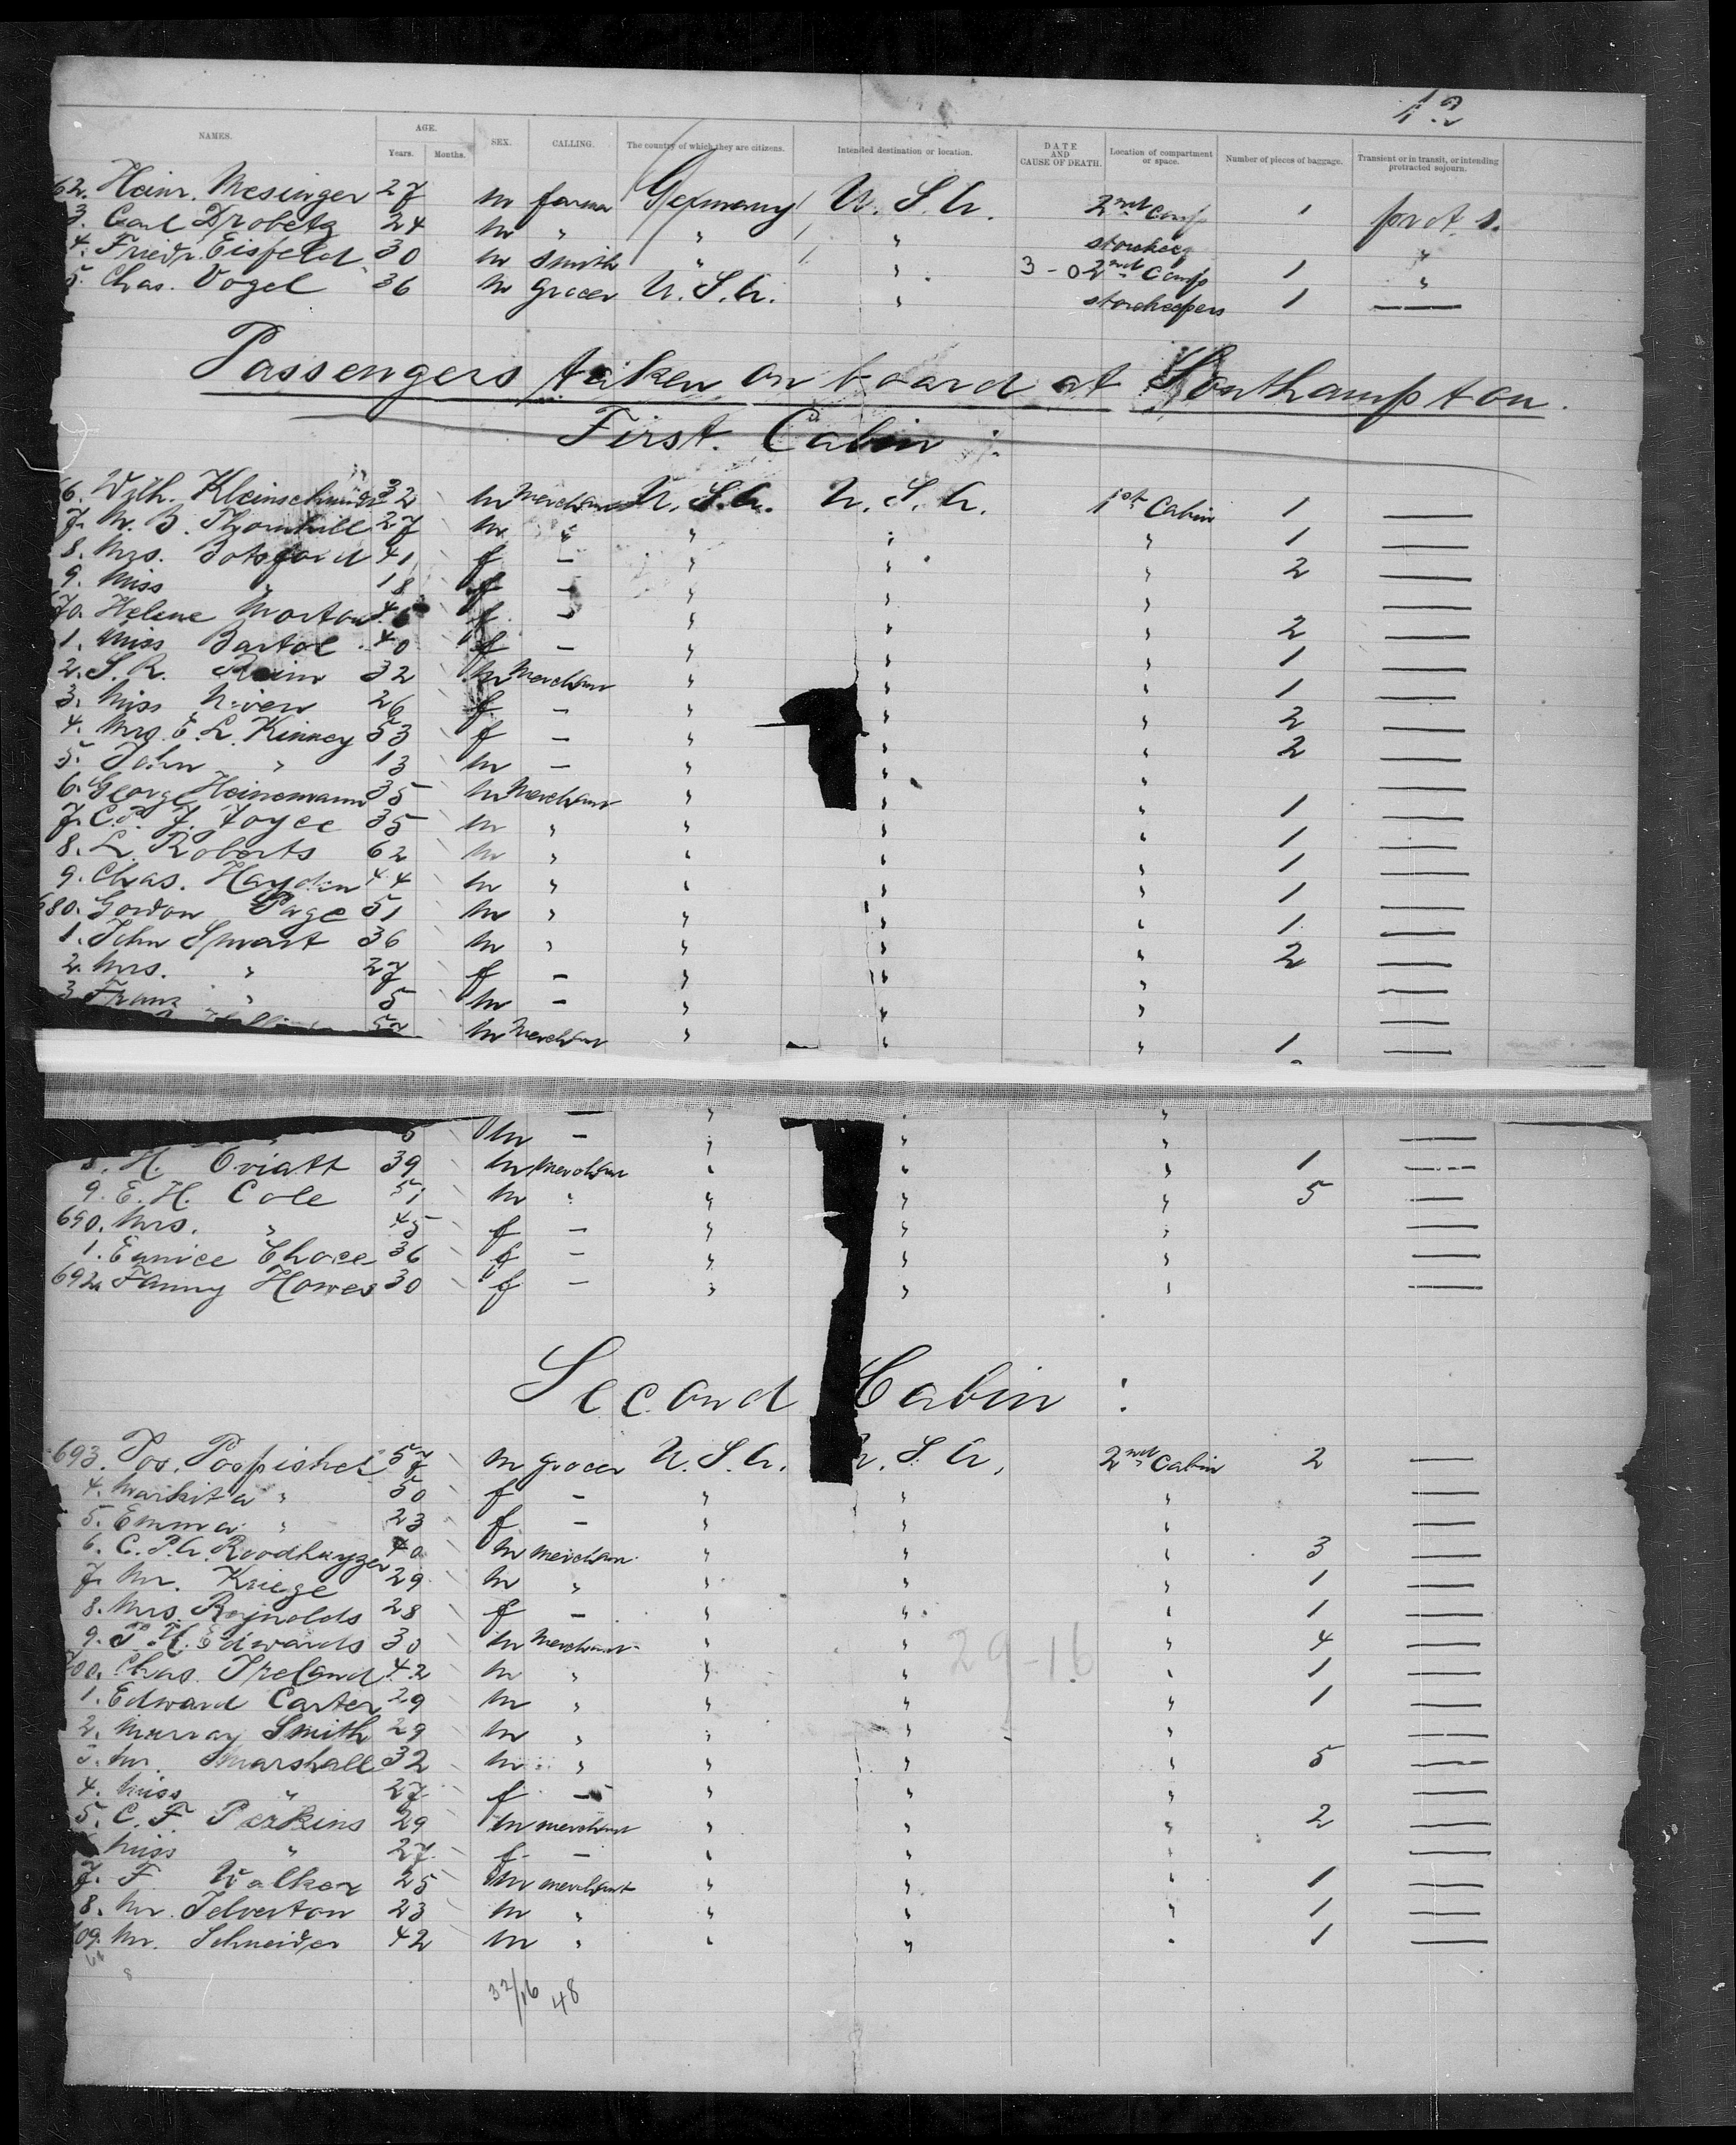 12
NAMES. AGE. Years. Months. SEX. CALLING. The country of which they are citizens. Intended destination or location. DATE AND CAUSE OF DEATH. Location of compartment or space. Number of pieces of baggage. Transient or in transit, or intending protracted sojourn.
62. Heinr. Mesinger 27 m farmer Germany U.S.A. 2nd Comp 1 prot. s.
3. Carl Drobetz 24 m " " "
4. Friedr. Eisfeld 30 m smith " " 3-0 2nd Comp 1 "
5. Chas. Vogel 36 m grocer U.S.A. " storekeepers 1 —
Passengers taken on board at Southampton.
First Cabin:
6. Wilh. Kleinschmidt 32 m Merchant U.S.A. U.S.A. 1st Cabin 1 —
7. M. B. Thornhill 27 m " " " " 1 —
8. Mrs. Botsford 41 f — " " " 2 —
9. Miss " 18 f — " " " —
70. Helene Morton f — " " " 2 —
1. Miss Bartol 40 f — " " " 1 —
2. S. R. 32 m Merchant " " " 1 —
3. Miss Niven 26 f — " " " 2 —
4. Mrs. E. L. Kinney 53 f — " " " 2 —
5. John " 13 m — " " " —
6. George Heinemann 35 m Merchant " " " 1 —
7. J. Joyce 35 m " " " " 1 —
8. L. Roberts 62 m " " " " 1 —
9. Chas. Hayden 44 m " " " " 1 —
680. Gordon Page 51 m " " " " 1 —
1. John Smart 36 m " " " " 2 —
2. Mrs. " 27 f — " " " —
3 Franz " 5 m — " " " —
m Merchant " " " 1 —
— " " "
m — " " " —
8. H. Oviatt 39 m Merchant " " " 1 —
9. E. H. Cole 51 m " " " " 5 —
690. Mrs. " 45 f — " " " —
1. Eunice Chace 36 f — " " " —
692. Fanny Howes 30 f — " " " —
Second Cabin:
693. Jos. Pospishel 57 m grocer U.S.A. U.S.A. 2nd Cabin 2 —
4. Markita " 50 f — " " " —
5. Emma " 23 f — " " " —
6. C. P. A. Roodhuyzen 40 m merchant " " " 3 —
7. Mr. Kriege 29 m " " " " 1 —
8. Mrs. Reynolds 28 f — " " " 1 —
9. Edwards 30 m Merchant " " " 4 —
700. Chas. Ireland 42 m " " " " 1 —
29-16
1. Edward Carter 29 m " " " " 1 —
2. Murray Smith 29 m " " " " —
3. Mr. Marshall 32 m " " " " 5 —
4. Miss " 27 f — " " " —
5. C. F. Perkins 29 m merchant " " " 2 —
Miss " 27 f — " " " —
7. F. Walker 25 m merchant " " " 1 —
8. Mr. Jelverton 23 m " " " " 1 —
09. Mr. Schneider 42 m " " " " 1 —
32/16 48